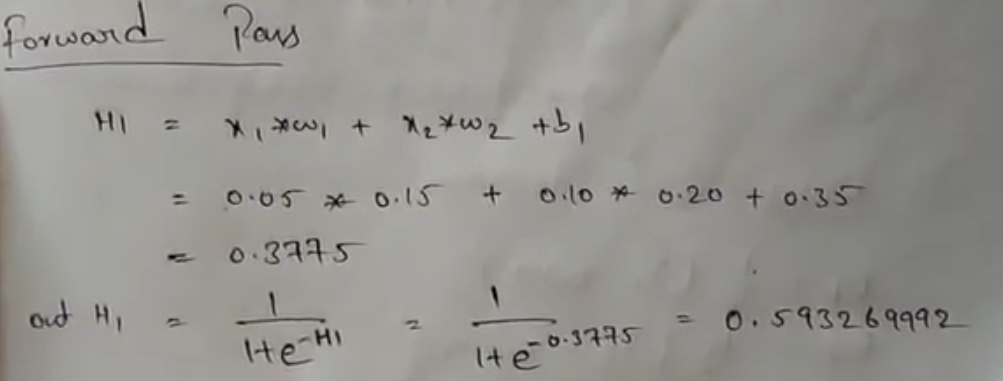 Forward Pass
H1 = x₁*w₁ + x₂*w₂ + b₁
= 0.05 * 0.15 + 0.10 * 0.20 + 0.35
= 0.3775
out H₁ = 1/(1+e^-H1) = 1/(1+e^-0.3775) = 0.593269992